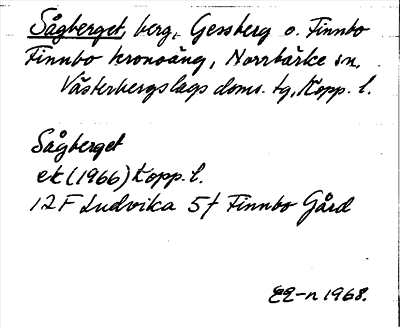 Sågberget, berg, Gessberg o. Finnbo
Finnbo kronoäng, Norrbärke sn,
Västerbergslags doms. tg, Kopp. l.
Sågberget
ek (1966) Kopp. l.
12F Ludvika 5f Finnbo Gård
EQ-n 1968.